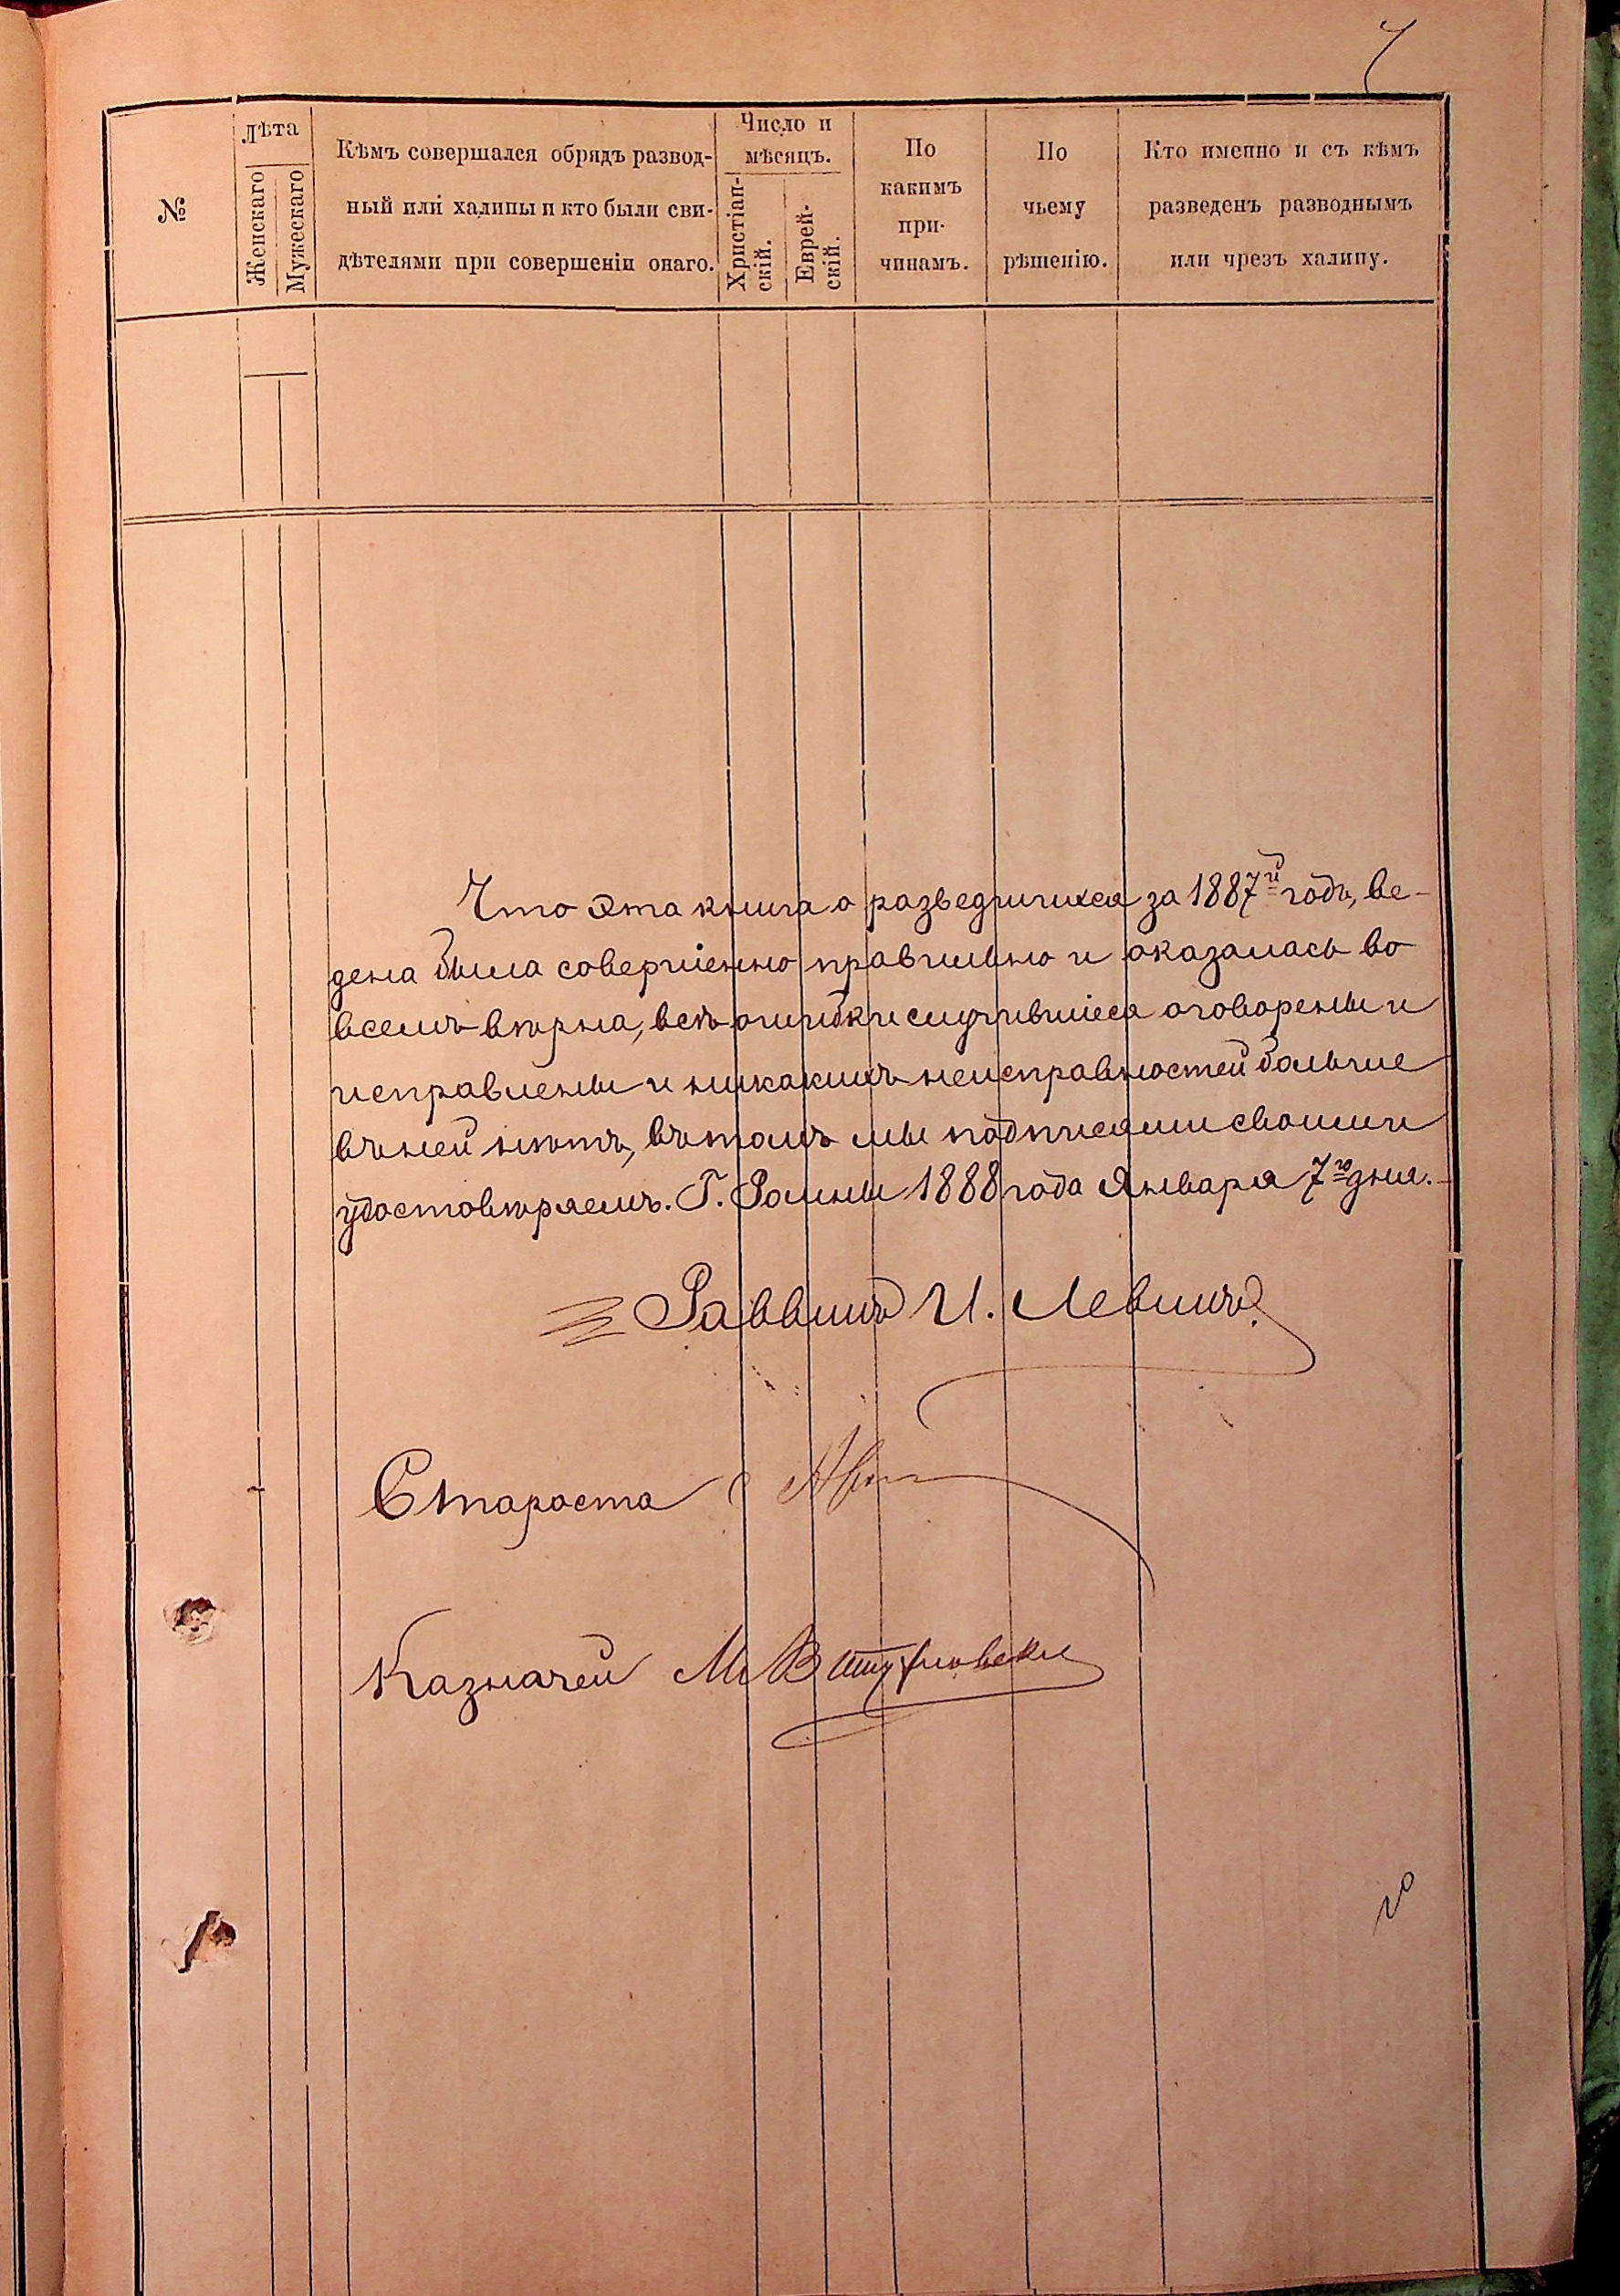 7
№
Лѣта
Женскаго
Мужескаго
Кѣмъ совершался обрядъ развод-
ный или халицы и кто были сви-
дѣтелями при совершеніи онаго.
Число и
мѣсяцъ.
Христіан-
скій.
Еврей-
скій.
По
какимъ
при-
чинамъ.
По
чьему
рѣшенію.
Кто именно и съ кѣмъ
разведенъ разводнымъ
или чрезъ халицу.
Что эта книга о разведшихся за 1887й годъ, ве-
дена была совершенно правильно и оказалась во
всемъ вѣрна, всѣ ошибки случившіеся оговорены и
исправлены и никакихъ неисправностей больше
въ ней нѣтъ, въ томъ мы подписями своими
удостовѣряемъ. Г. Ромны 1888 года Января 7го дня.
Раввинъ И. Левинъ.
Староста
Казначей М В